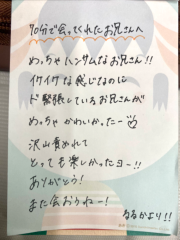 70分で会ってくれたお兄さんへ
めっちゃハンサムなお兄さん!!
イケイケな感じなのに
ド緊張しているお兄さんが
めっちゃかわいかったー
沢山責めれて
とっても楽しかったヨー!!
ありがとう!
また会おうねー!
るるかより!!